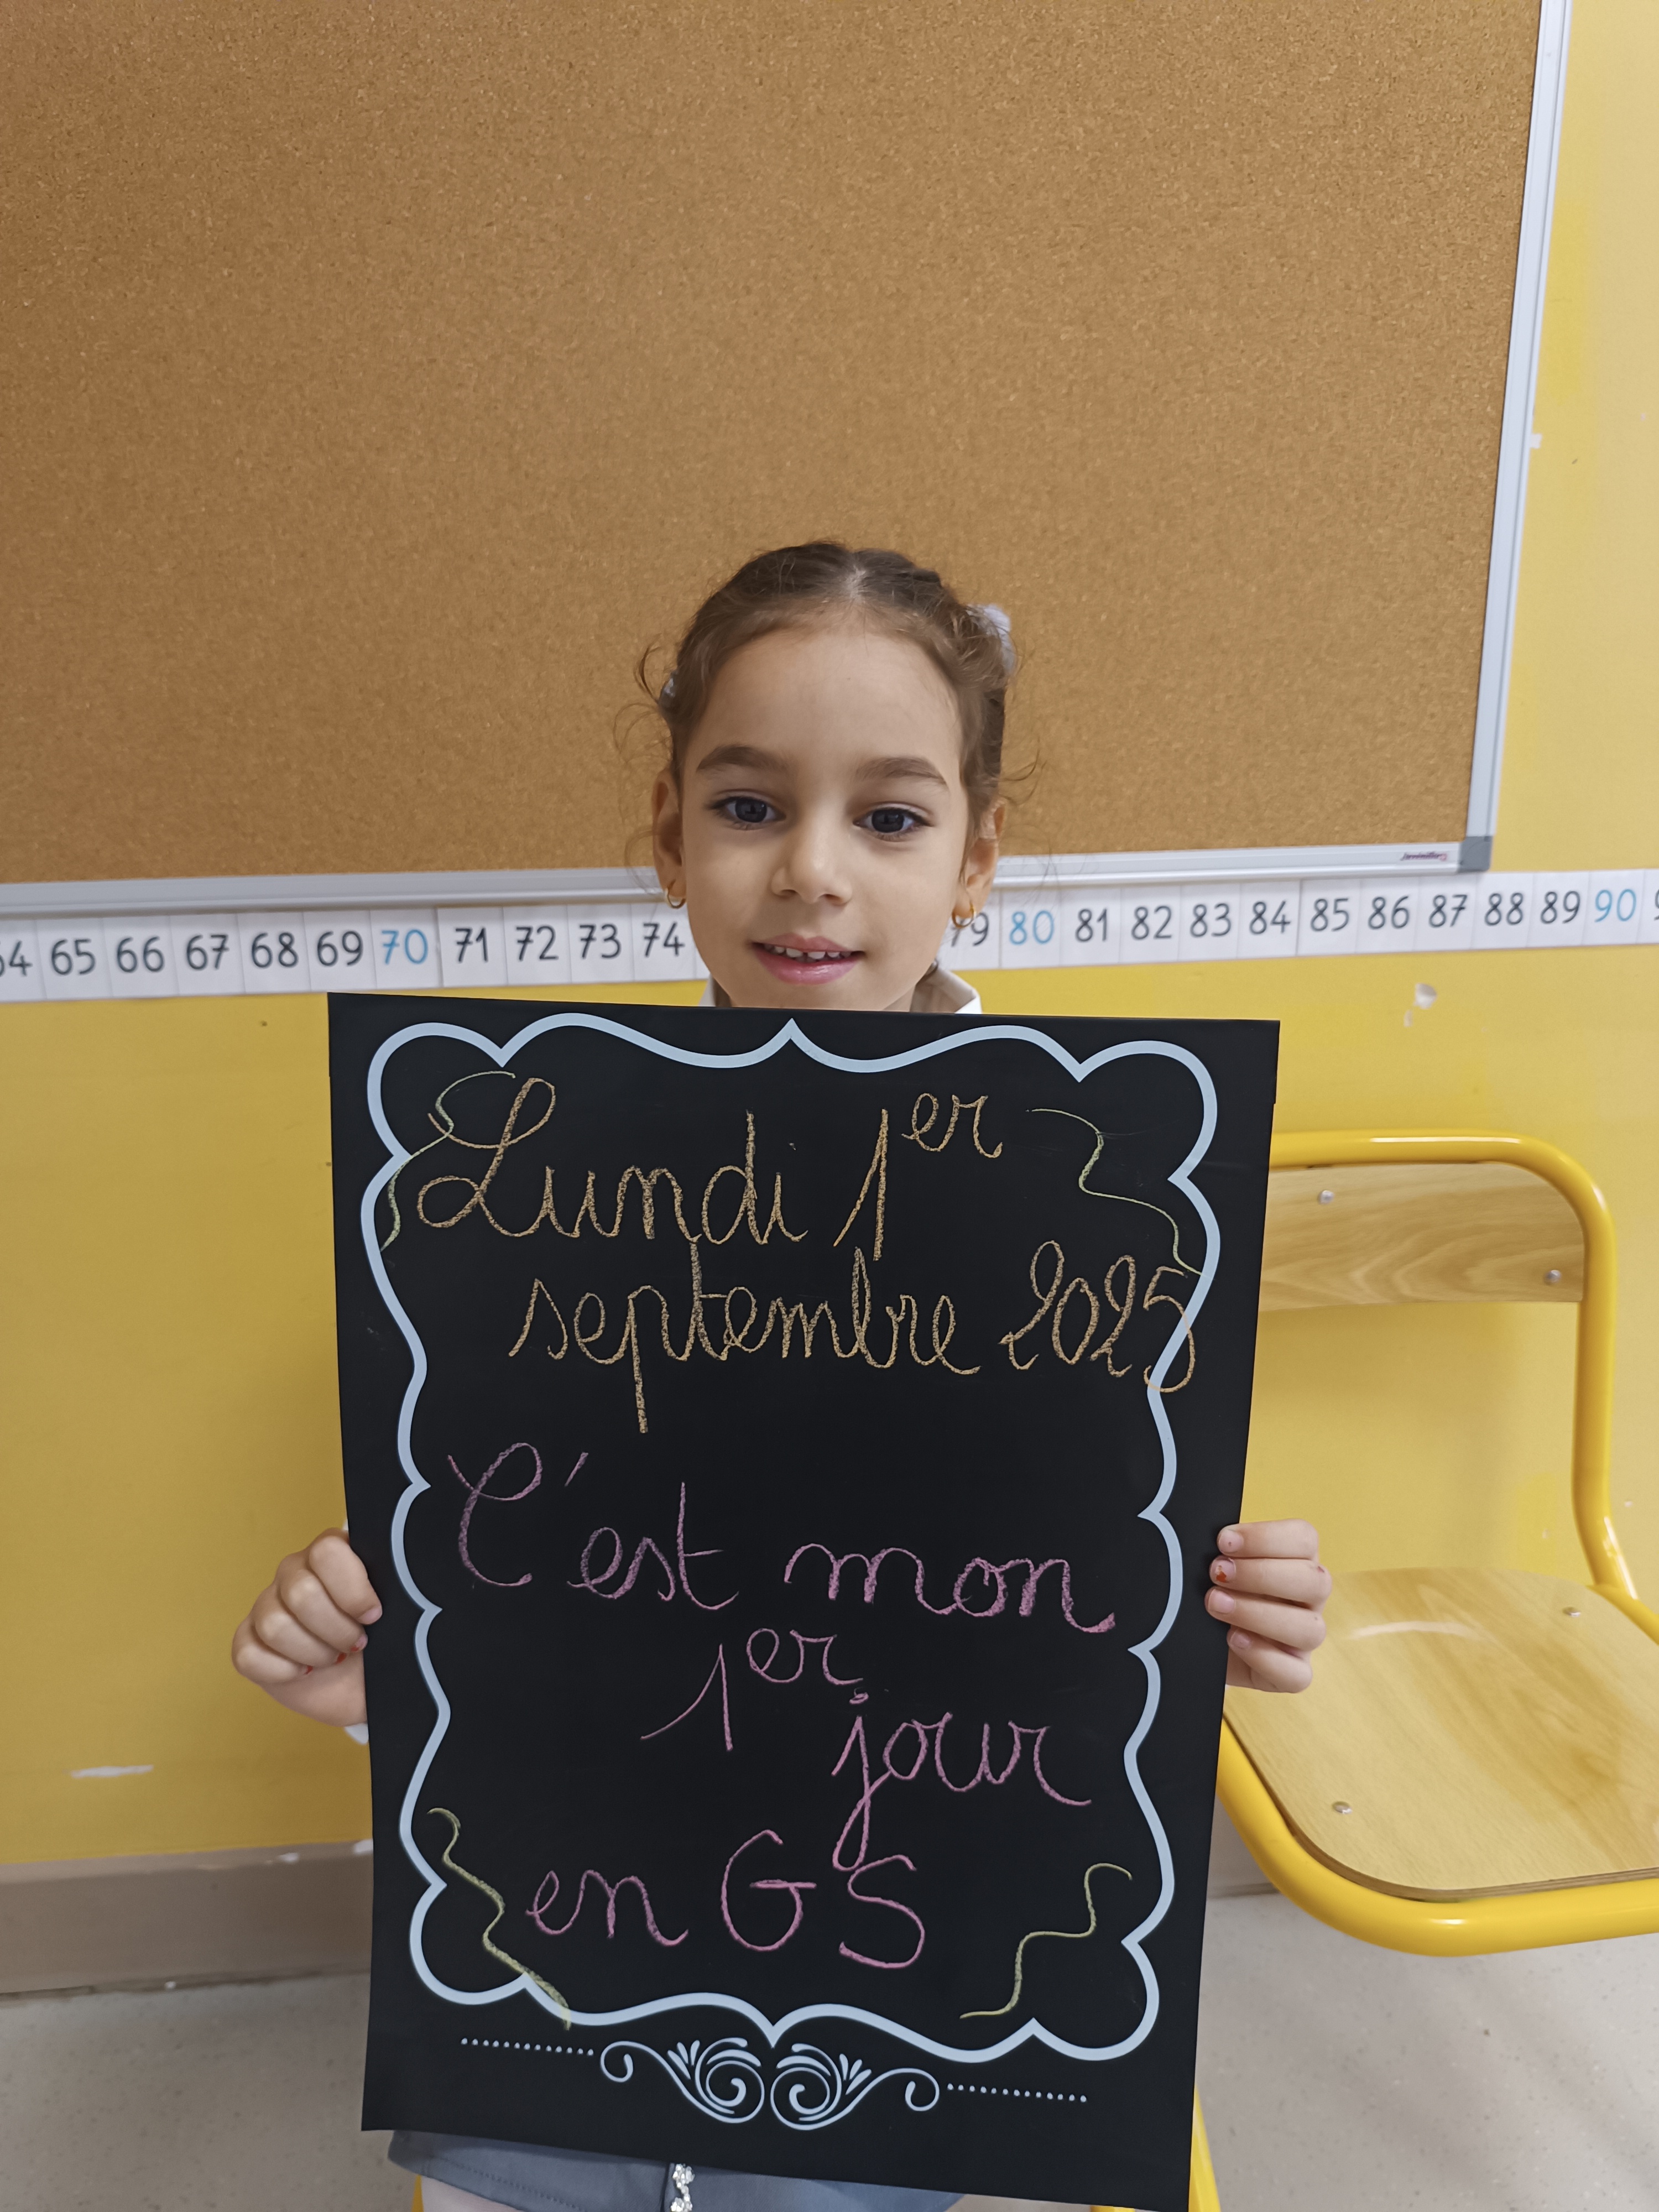 64 65 66 67 68 69 70 71 72 73 74 79 80 81 82 83 84 85 86 87 88 89 90
Lundi 1er
septembre 2025
C'est mon
1er
jour
en GS